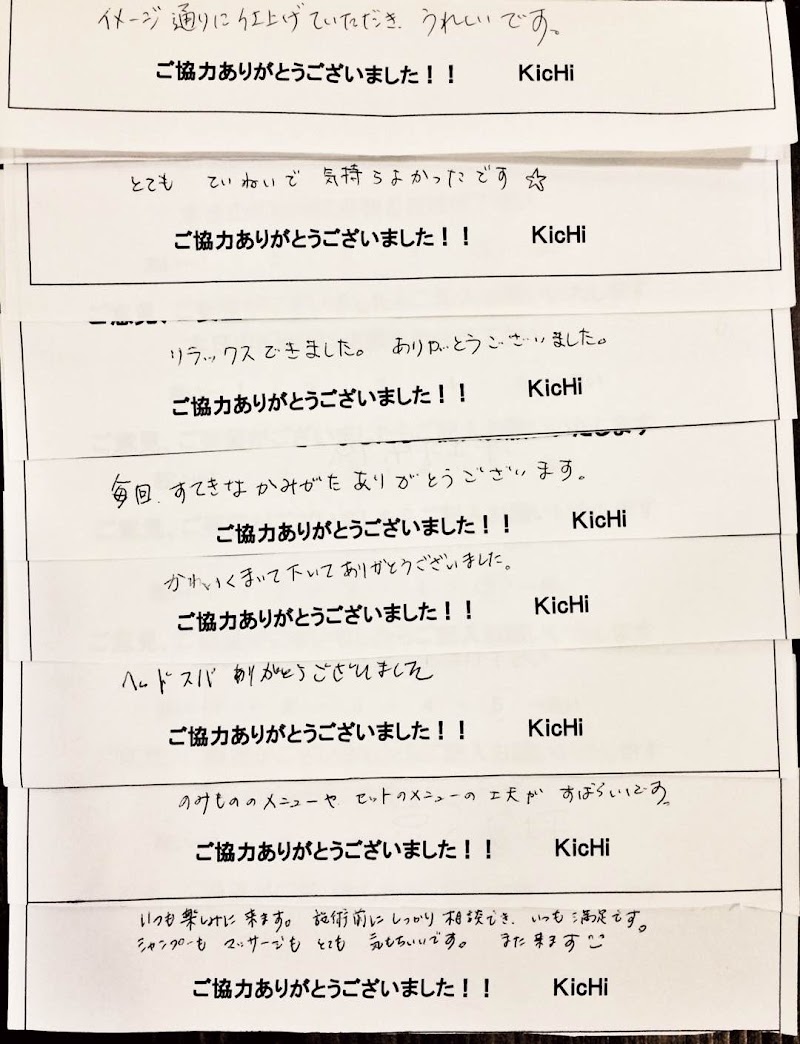 イメージ通りに仕上げていただき、うれしいです。
ご協力ありがとうございました！！ KicHi
とても ていねいで 気持ちよかったです☆
ご協力ありがとうございました！！ KicHi
リラックスできました。 ありがとうございました。
ご協力ありがとうございました！！ KicHi
毎回、すてきなかみがた ありがとうございます。
ご協力ありがとうございました！！ KicHi
かわいくまいて下いてありがとうございました。
ご協力ありがとうございました！！ KicHi
ヘッドスパ ありがとうございました
ご協力ありがとうございました！！ KicHi
のみもののメニューや セットのメニューの工夫が すばらいいです。
ご協力ありがとうございました！！ KicHi
いつも楽しみに来ます。 施術前にしっかり相談でき、いつも満足です。
シャンプーも マッサージも とても 気もちいいです。 また来ます
ご協力ありがとうございました！！ KicHi